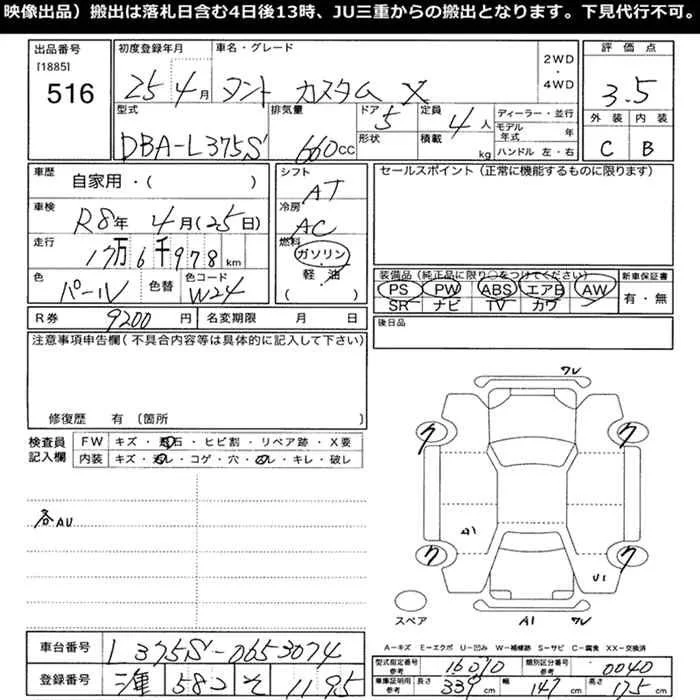 映像出品）搬出は落札日含む4日後13時、JU三重からの搬出となります。下見代行不可。
出品番号
[1885]
516
初度登録年月
25年4月
車名・グレード
タント カスタム X
2WD
・
4WD
評価点
3.5
外装 内装
C B
型式
DBA-L375S
排気量
660cc
ドア 5
形状
定員
4人
積載
kg
ディーラー・並行
モデル年式 年
ハンドル 左・右
車歴
自家用・( )
車検
R8年4月(25日)
走行
17万6千978km
色
パール
色替
色コード
W24
シフト
AT
冷房
AC
燃料
ガソリン
軽・油
( )
セールスポイント（正常に機能するものに限ります）
装備品（純正品に限り○をつけてください）
PS PW ABS エアB AW
SR ナビ TV カワ
新車保証書
有・無
後日品
R券 9200円
名変期限 月 日
注意事項申告欄(不具合内容等は具体的に記入して下さい)
修復歴 有 〔箇所 〕
検査員
記入欄
FW キズ・飛石・ヒビ割・リペア跡・X要
内装 キズ・汚レ・コゲ・穴・スレ・キレ・破レ
各AU
ワレ
ク ク
A1
ク ク
U1
スペア
A1 ワレ
A−キズ E−エクボ U−凹み W−補修跡 S−サビ C−腐食 XX−交換済
車台番号
L375S-0653074
登録番号
三重 582 そ 1195
型式指定番号
参考
16010
類別区分番号
参考
0040
車庫証明用
参考
長さ 339cm
幅 147cm
高さ 175cm